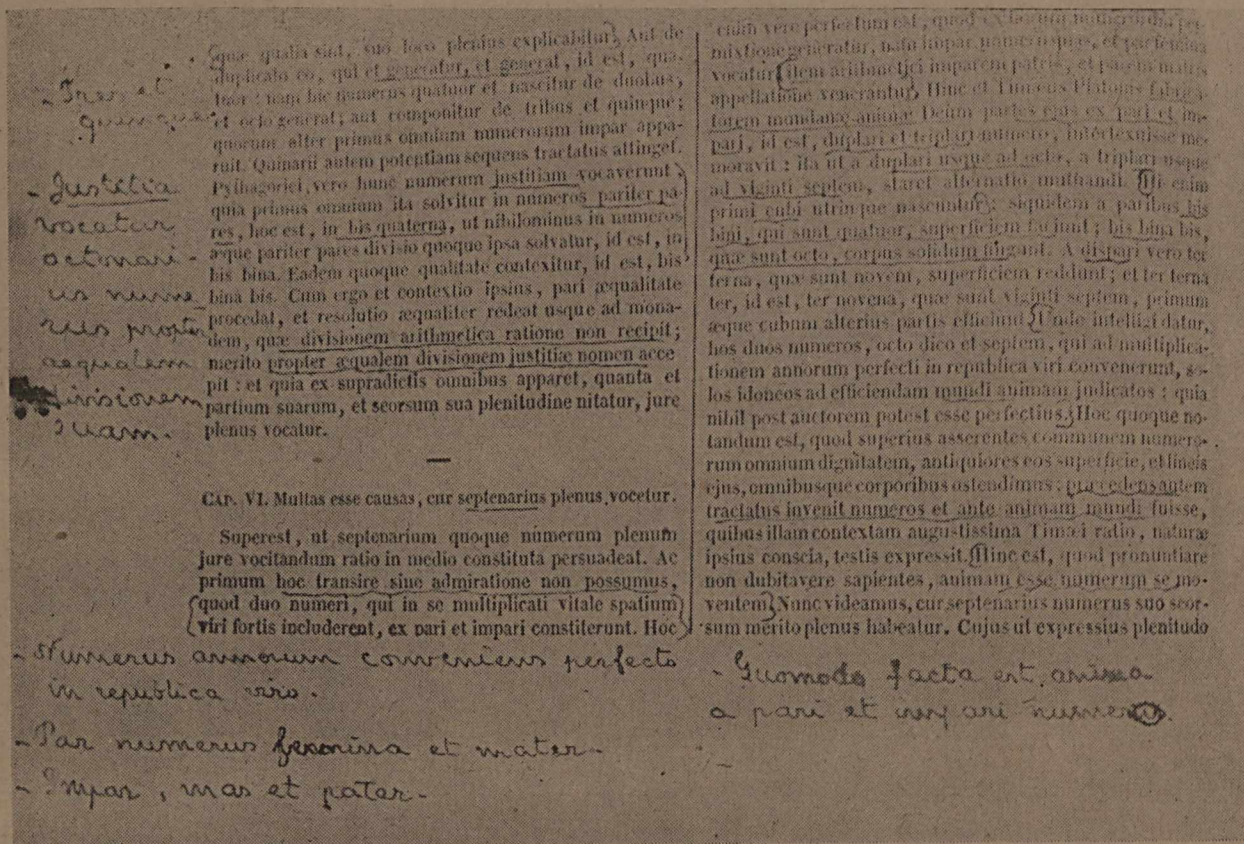 quæ qualia sint, suo loco plenius explicabitur. Aut de
duplicato eo, qui et generatur, et generat, id est, qua-
tuor : nam hic numerus quatuor et nascitur de duobus,
et octo generat; aut componitur de tribus et quinque;
quorum alter primus omnium numerorum impar appa-
ruit. Quinarii autem potentiam sequens tractatus attinget.
Pythagorici vero hunc numerum justitiam vocaverunt
quia primus omnium ita solvitur in numeros pariter pa-
res, hoc est, in bis quaterna, ut nihilominus in numeros
æque pariter pares divisio quoque ipsa solvatur, id est, in
bis bina. Eadem quoque qualitate contexitur, id est, bis
bina bis. Cum ergo et contextio ipsius, pari æqualitate
procedat, et resolutio æqualiter redeat usque ad mona-
dem, quæ divisionem arithmetica ratione non recipit;
merito propter æqualem divisionem justitiæ nomen acce
pit : et quia ex supradictis omnibus apparet, quanta et
partium suarum, et seorsum sua plenitudine nitatur, jure
plenus vocatur.
CAP. VI. Multas esse causas, cur septenarius plenus vocetur.
Superest, ut septenarium quoque númerum plenum
jure vocitandum ratio in medio constituta persuadeat. Ac
primum hoc transire sine admiratione non possumus,
quod duo numeri, qui in se multiplicati vitale spatium
viri fortis includerent, ex pari et impari constiterunt. Hoc
- Tres et
quinque
- Justitia
vocatur
octonari-
us nume
rus propter
aequalem
divisionem
suam.
- Numerus annorum conveniens perfecto
in republica viro.
- Par numerus femina et mater-
- Impar, mas et pater-
enim vere perfectum est, quod ex horum numerorum per-
mixtione generatur, nam impar numerus mas, et par femina
vocatur. Item arithmetici imparem patris, et parem matris
appellatione venerantur. Hinc et Timæus Platonis fabrica-
torem mundanæ animæ Deum partes ejus ex pari et im-
pari, id est, duplari et triplari numero, intertexuisse me-
moravit : ita ut a duplari usque ad octo, a triplari usque
ad viginti septem, staret alternatio mutuandi. Hi enim
primi cubi utrinque nascuntur : siquidem a paribus bis
bini, qui sunt quatuor, superficiem faciunt; bis bina bis,
quæ sunt octo, corpus solidum fingunt. A dispari vero ter
terna, quæ sunt novem, superficiem reddunt; et ter terna
ter, id est, ter novena, quæ sunt viginti septem, primum
æque cubum alterius partis efficiunt. Unde intelligi datur,
hos duos numeros, octo dico et septem, qui ad multiplica-
tionem annorum perfecti in republica viri convenerunt, so-
los idoneos ad efficiendam mundi animam judicatos : quia
nihil post auctorem potest esse perfectius. Hoc quoque no-
tandum est, quod superius asserentes communem numero-
rum omnium dignitatem, antiquiores eos superficie, et lineis
ejus, omnibusque corporibus ostendimus : præcedens autem
tractatus invenit numeros et ante animam mundi fuisse,
quibus illam contextam augustissima Timæi ratio, naturæ
ipsius conscia, testis expressit. Hinc est, quod pronuntiare
non dubitavere sapientes, animam esse numerum se mo-
ventem. Nunc videamus, cur septenarius numerus suo seor-
sum merito plenus habeatur. Cujus ut expressius plenitudo
- Quomodo facta est anima
a pari et impari numero.